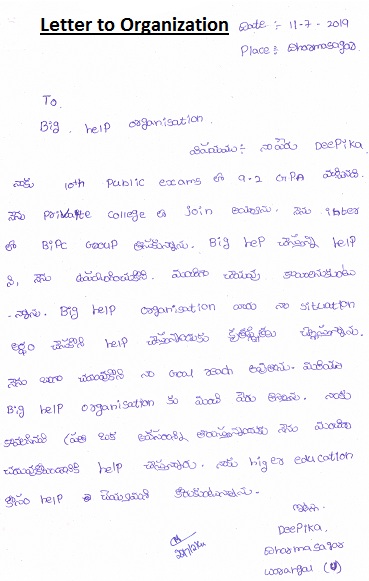 Letter to Organization
Date :- 11-7-2019
Place : Dharmasagar.
To,
Big help organisation.
విషయము :- నా పేరు DeePika
నాకు 10th Public exams లో 9.2 GPA వచ్చినది.
నేను Private College లో Join అయ్యాను. నేను inter
లో BiPC Group తీసుకున్నాను. Big help చేస్తున్న help
ని, నేను మంచిగా చదువు
- న్నాను. Big help organisation వారు నా situation
అర్థం చేసుకొని help చేస్తున్నందుకు కృతజ్ఞతలు చెప్పుతున్నాను.
నేను బాగా చదువుకొని నా Goal reach అవుతాను. మరియు
Big help organisation కు మంచి పేరు తెస్తాను. నాకు
కావలసిన ప్రతి ఒక్క నేను మంచిగా
చదువుకోవడానికి help చేస్తున్నారు. నాకు higer education
కోసం help చేయాలని కోరుకుంటున్నాను.
ఇట్లు.
DeePika,
Dharmasagar
warangal (U)